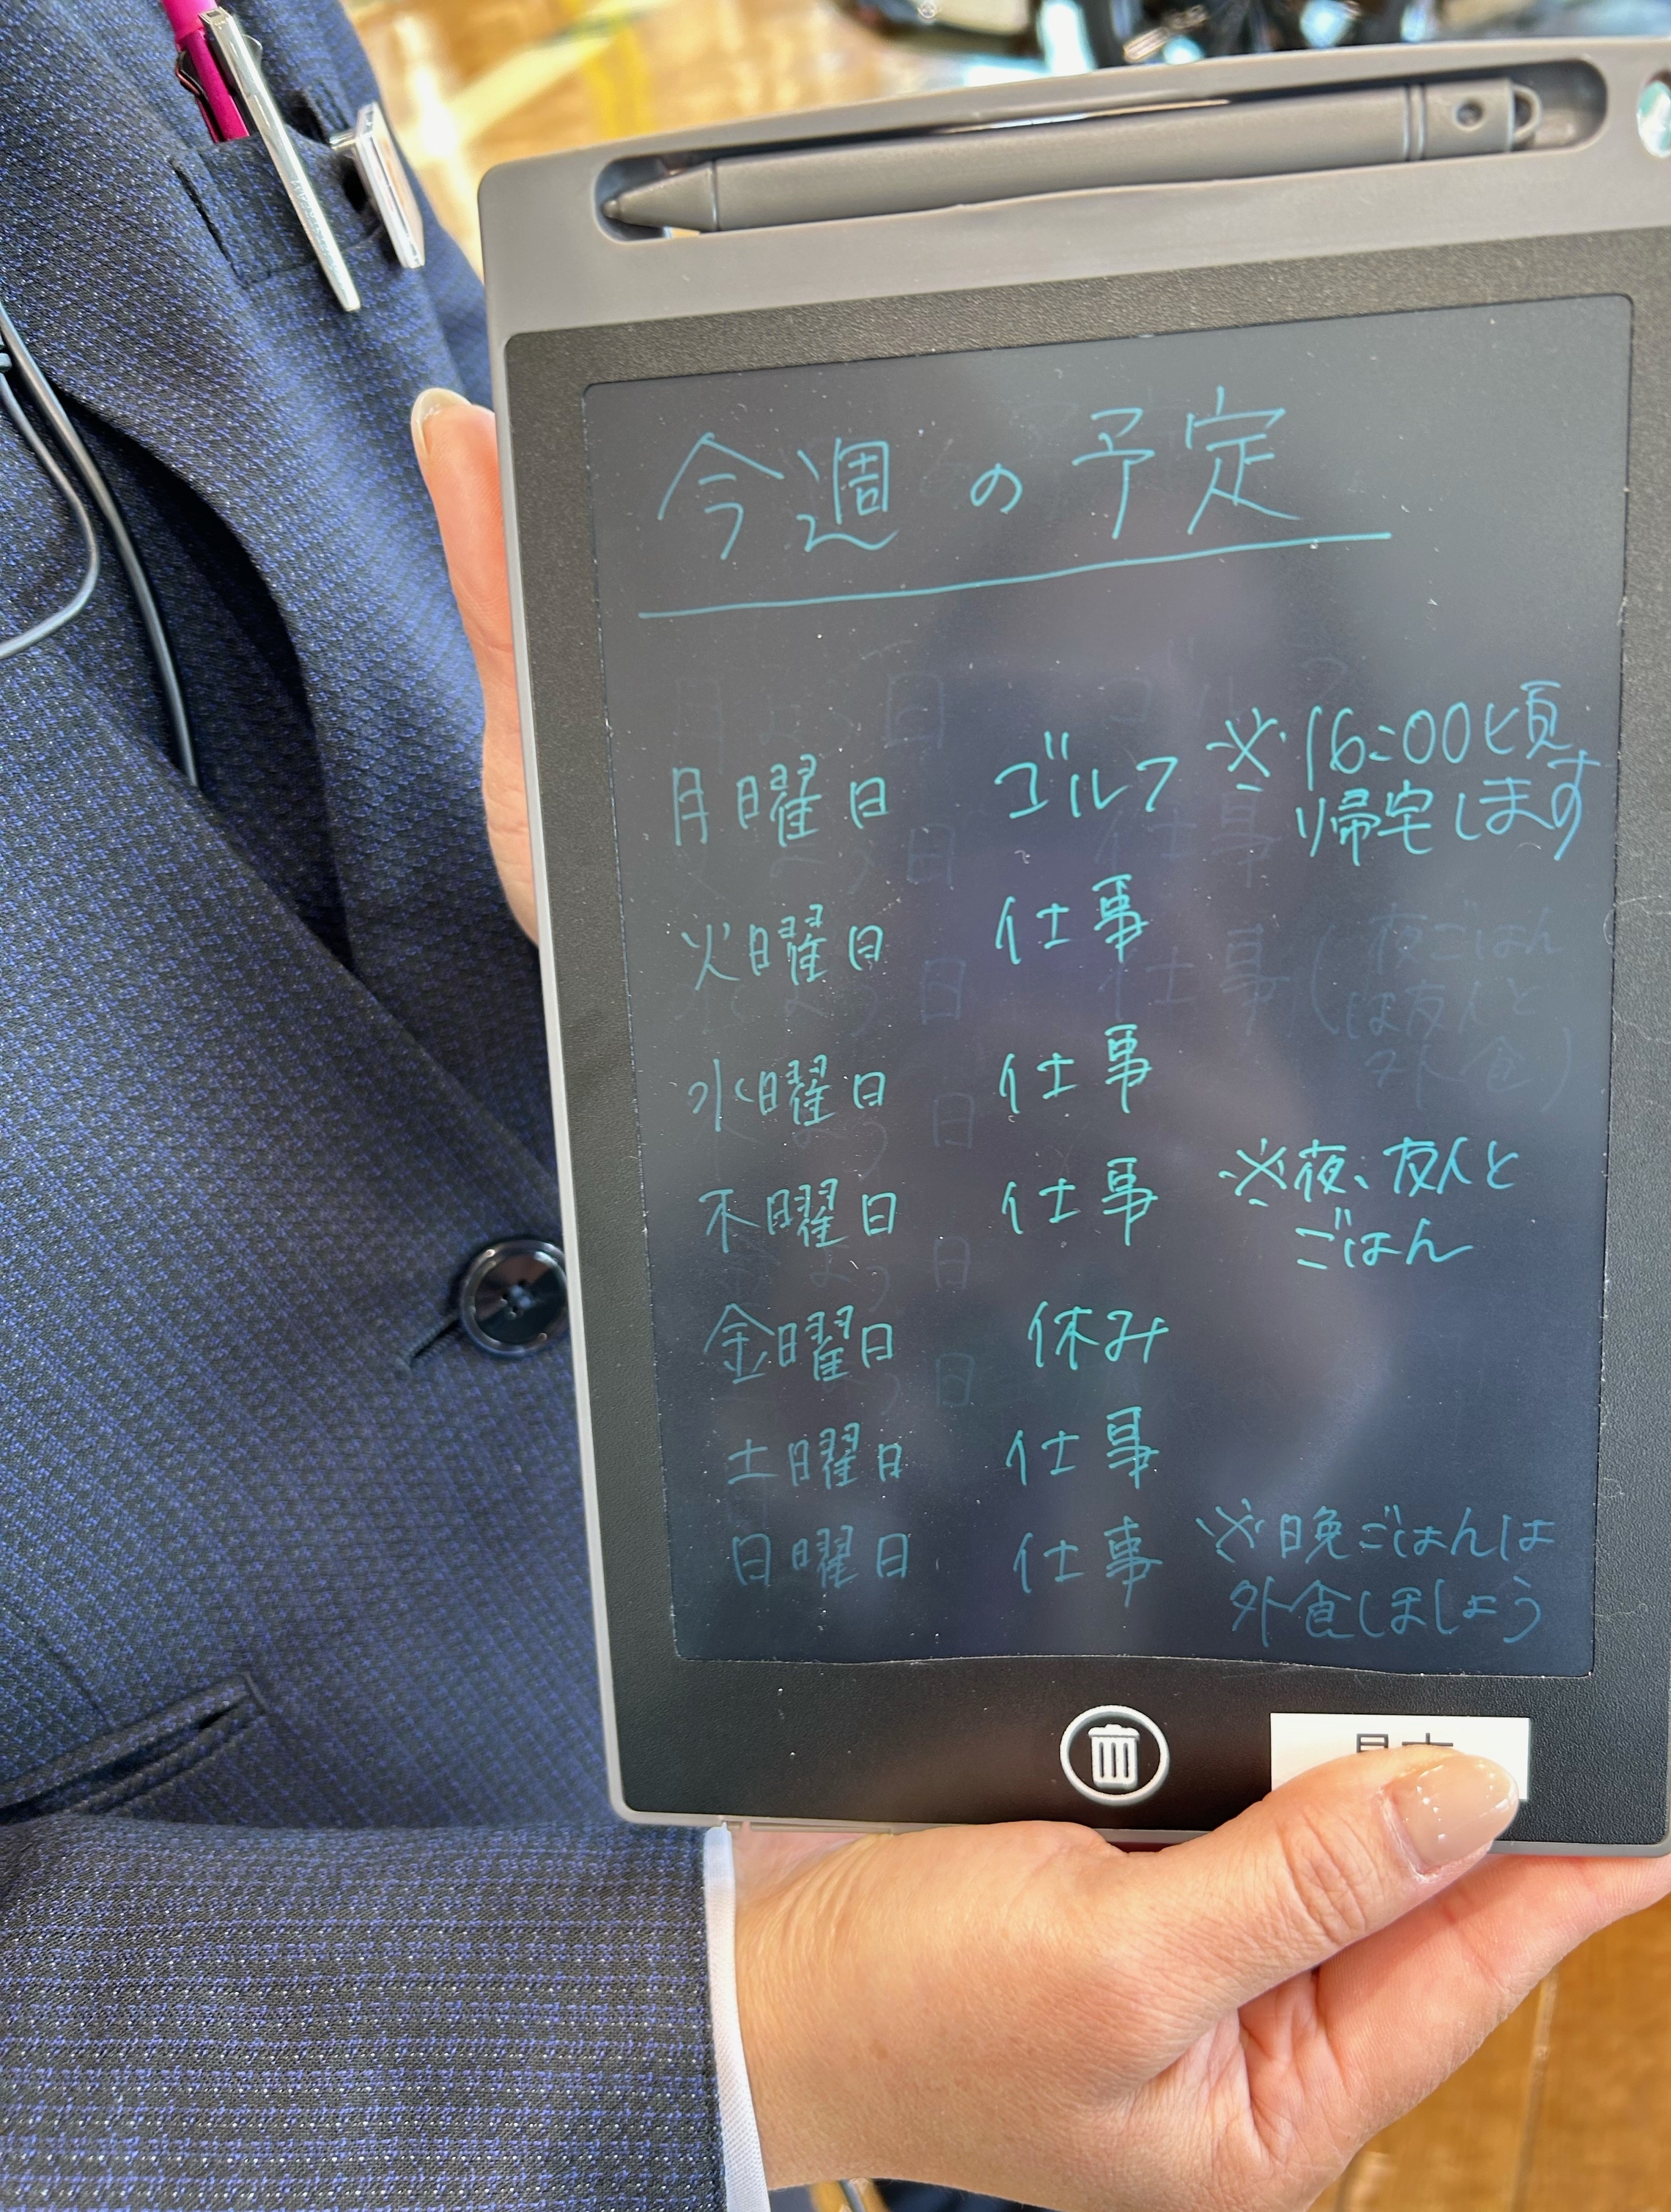 今週の予定
月曜日 ゴルフ ※16:00頃
帰宅します
火曜日 仕事
水曜日 仕事
木曜日 仕事 ※夜、友人と
ごはん
金曜日 休み
土曜日 仕事
日曜日 仕事 ※晩ごはんは
外食しましょう